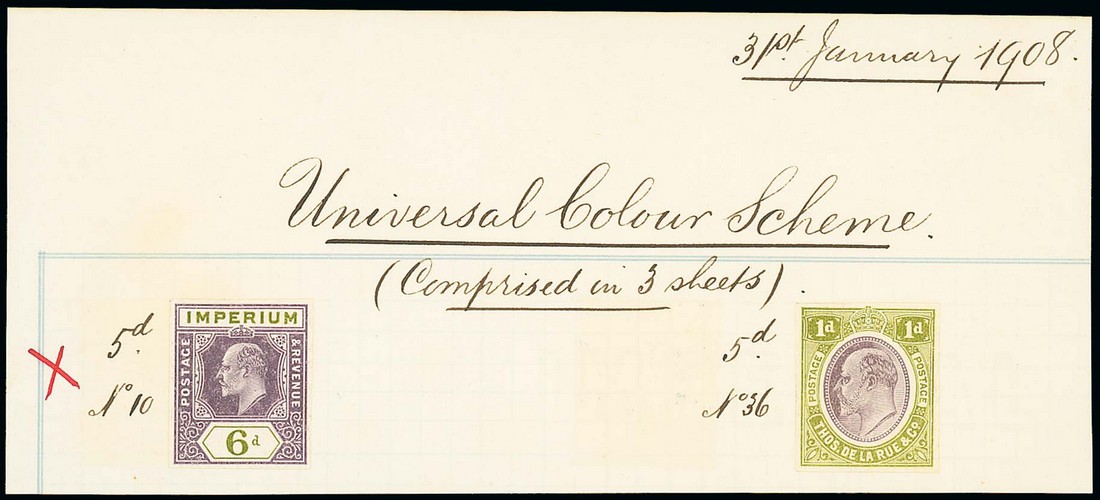 31st. January 1908.
Universal Colour Scheme.
(Comprised in 3 sheets).
5d.
No 10
IMPERIUM
POSTAGE
& REVENUE
6d
5d.
No 36
1d
1d
POSTAGE
POSTAGE
THOS. DE LA RUE & CO.